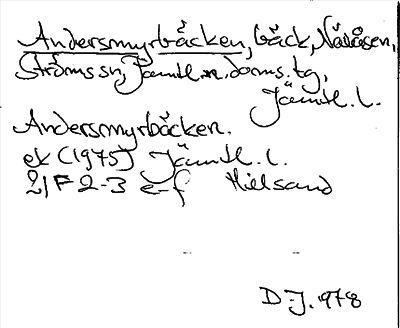 Andersmyrbäcken, bäck, Navåsen,
Ströms sn, Jämtl. n. doms. tg,
Jämtl. l.
Andersmyrbäcken.
ek (1975) Jämtl. l.
21F 2-3 e-f
D-J. 1978